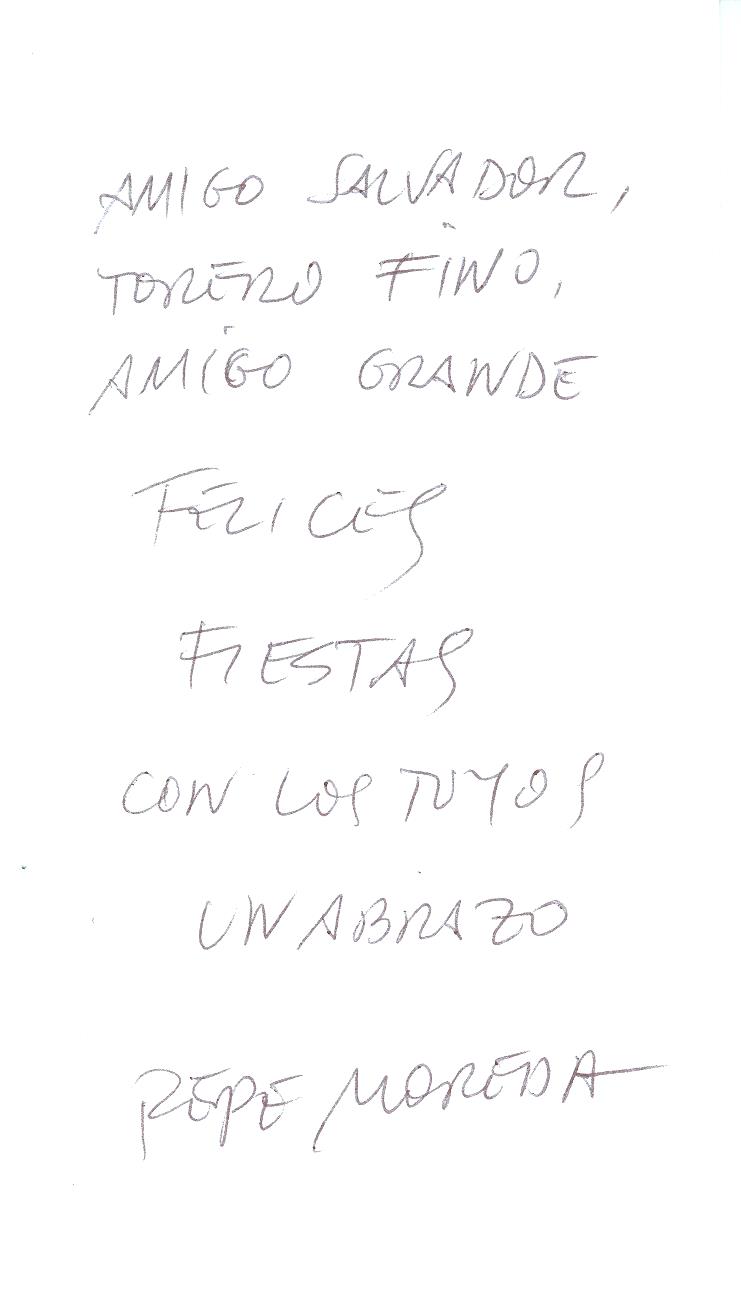 AMIGO SALVADOR,
TORERO FINO,
AMIGO GRANDE
FELICES
FIESTAS
CON LOS TUYOS
UN ABRAZO
PEPE MOREDA